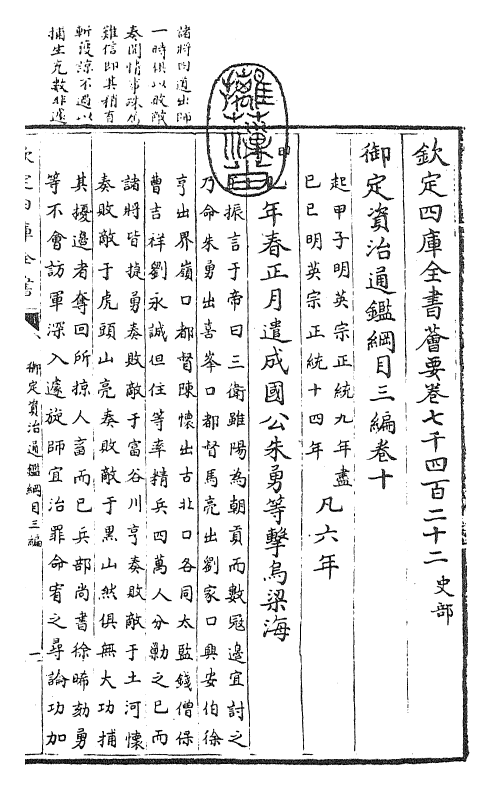 欽定四庫全書薈要卷七千四百二十二 史部
御定資治通鑑綱目三編卷十
起甲子明英宗正統九年盡
己巳明英宗正統十四年
凡六年
年春正月遣成國公朱勇等擊烏梁海
振言于帝曰三衛雖陽為朝貢而數冦邊宜討之
乃命朱勇出喜峯口都督馬亮出劉家口興安伯徐
亨出界嶺口都督陳懷出古北口各同太監錢僧保
曹吉祥劉永誠但住等率精兵四萬人分勦之已而
諸將皆捷勇奏敗敵于富谷川亨奏敗敵于土河懷
奏敗敵于虎頭山亮奏敗敵于黒山然俱無大功捕
其擾邊者奪回所掠人畜而已兵部尚書徐晞劾勇
等不會訪軍深入遽旋師宜治罪命宥之尋論功加
諸將四道出師
一時俱以敗賊
奏聞情事殊為
難信即其稍有
斬獲諒不過以
捕生充數非遽
欽定四庫全書
御定資治通鑑綱目三編
一